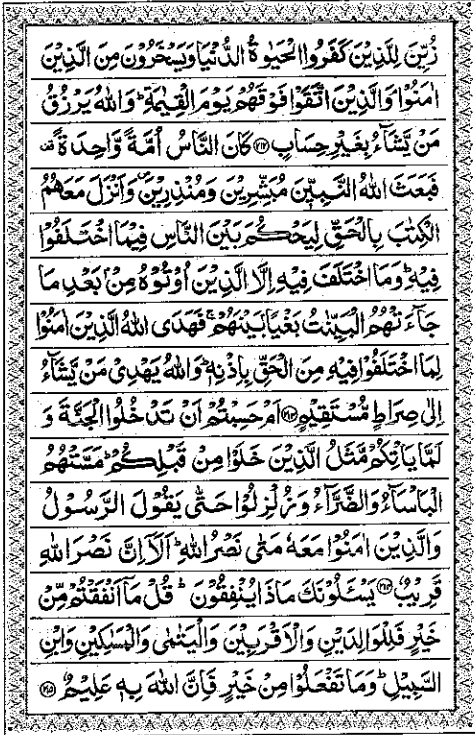 زُيِّنَ لِلَّذِيْنَ كَفَرُوا الْحَيٰوةُ الدُّنْيَا وَيَسْخَرُوْنَ مِنَ الَّذِيْنَ
اٰمَنُوْا وَالَّذِيْنَ اتَّقَوْا فَوْقَهُمْ يَوْمَ الْقِيٰمَةِ ؕ وَاللّٰهُ يَرْزُقُ
مَنْ يَّشَآءُ بِغَيْرِ حِسَابٍ ﴿۲۱۲﴾ كَانَ النَّاسُ اُمَّةً وَّاحِدَةً
فَبَعَثَ اللّٰهُ النَّبِيّٖنَ مُبَشِّرِيْنَ وَمُنْذِرِيْنَ وَاَنْزَلَ مَعَهُمُ
الْكِتٰبَ بِالْحَقِّ لِيَحْكُمَ بَيْنَ النَّاسِ فِيْمَا اخْتَلَفُوْا
فِيْهِ ؕ وَمَا اخْتَلَفَ فِيْهِ اِلَّا الَّذِيْنَ اُوْتُوْهُ مِنْۢ بَعْدِ مَا
جَآءَتْهُمُ الْبَيِّنٰتُ بَغْيًۢا بَيْنَهُمْ ۚ فَهَدَى اللّٰهُ الَّذِيْنَ اٰمَنُوْا
لِمَا اخْتَلَفُوْا فِيْهِ مِنَ الْحَقِّ بِاِذْنِهٖ ؕ وَاللّٰهُ يَهْدِيْ مَنْ يَّشَآءُ
اِلٰى صِرَاطٍ مُّسْتَقِيْمٍ ﴿۲۱۳﴾ اَمْ حَسِبْتُمْ اَنْ تَدْخُلُوا الْجَنَّةَ وَ
لَمَّا يَاْتِكُمْ مَّثَلُ الَّذِيْنَ خَلَوْا مِنْ قَبْلِكُمْ ؕ مَسَّتْهُمُ
الْبَاْسَآءُ وَالضَّرَّآءُ وَزُلْزِلُوْا حَتّٰى يَقُوْلَ الرَّسُوْلُ
وَالَّذِيْنَ اٰمَنُوْا مَعَهٗ مَتٰى نَصْرُ اللّٰهِ ؕ اَلَاۤ اِنَّ نَصْرَ اللّٰهِ
قَرِيْبٌ ﴿۲۱۴﴾ يَسْـَٔلُوْنَكَ مَاذَا يُنْفِقُوْنَ ؕ قُلْ مَاۤ اَنْفَقْتُمْ مِّنْ
خَيْرٍ فَلِلْوَالِدَيْنِ وَالْاَقْرَبِيْنَ وَالْيَتٰمٰى وَالْمَسٰكِيْنِ وَابْنِ
السَّبِيْلِ ؕ وَمَا تَفْعَلُوْا مِنْ خَيْرٍ فَاِنَّ اللّٰهَ بِهٖ عَلِيْمٌ ﴿۲۱۵﴾